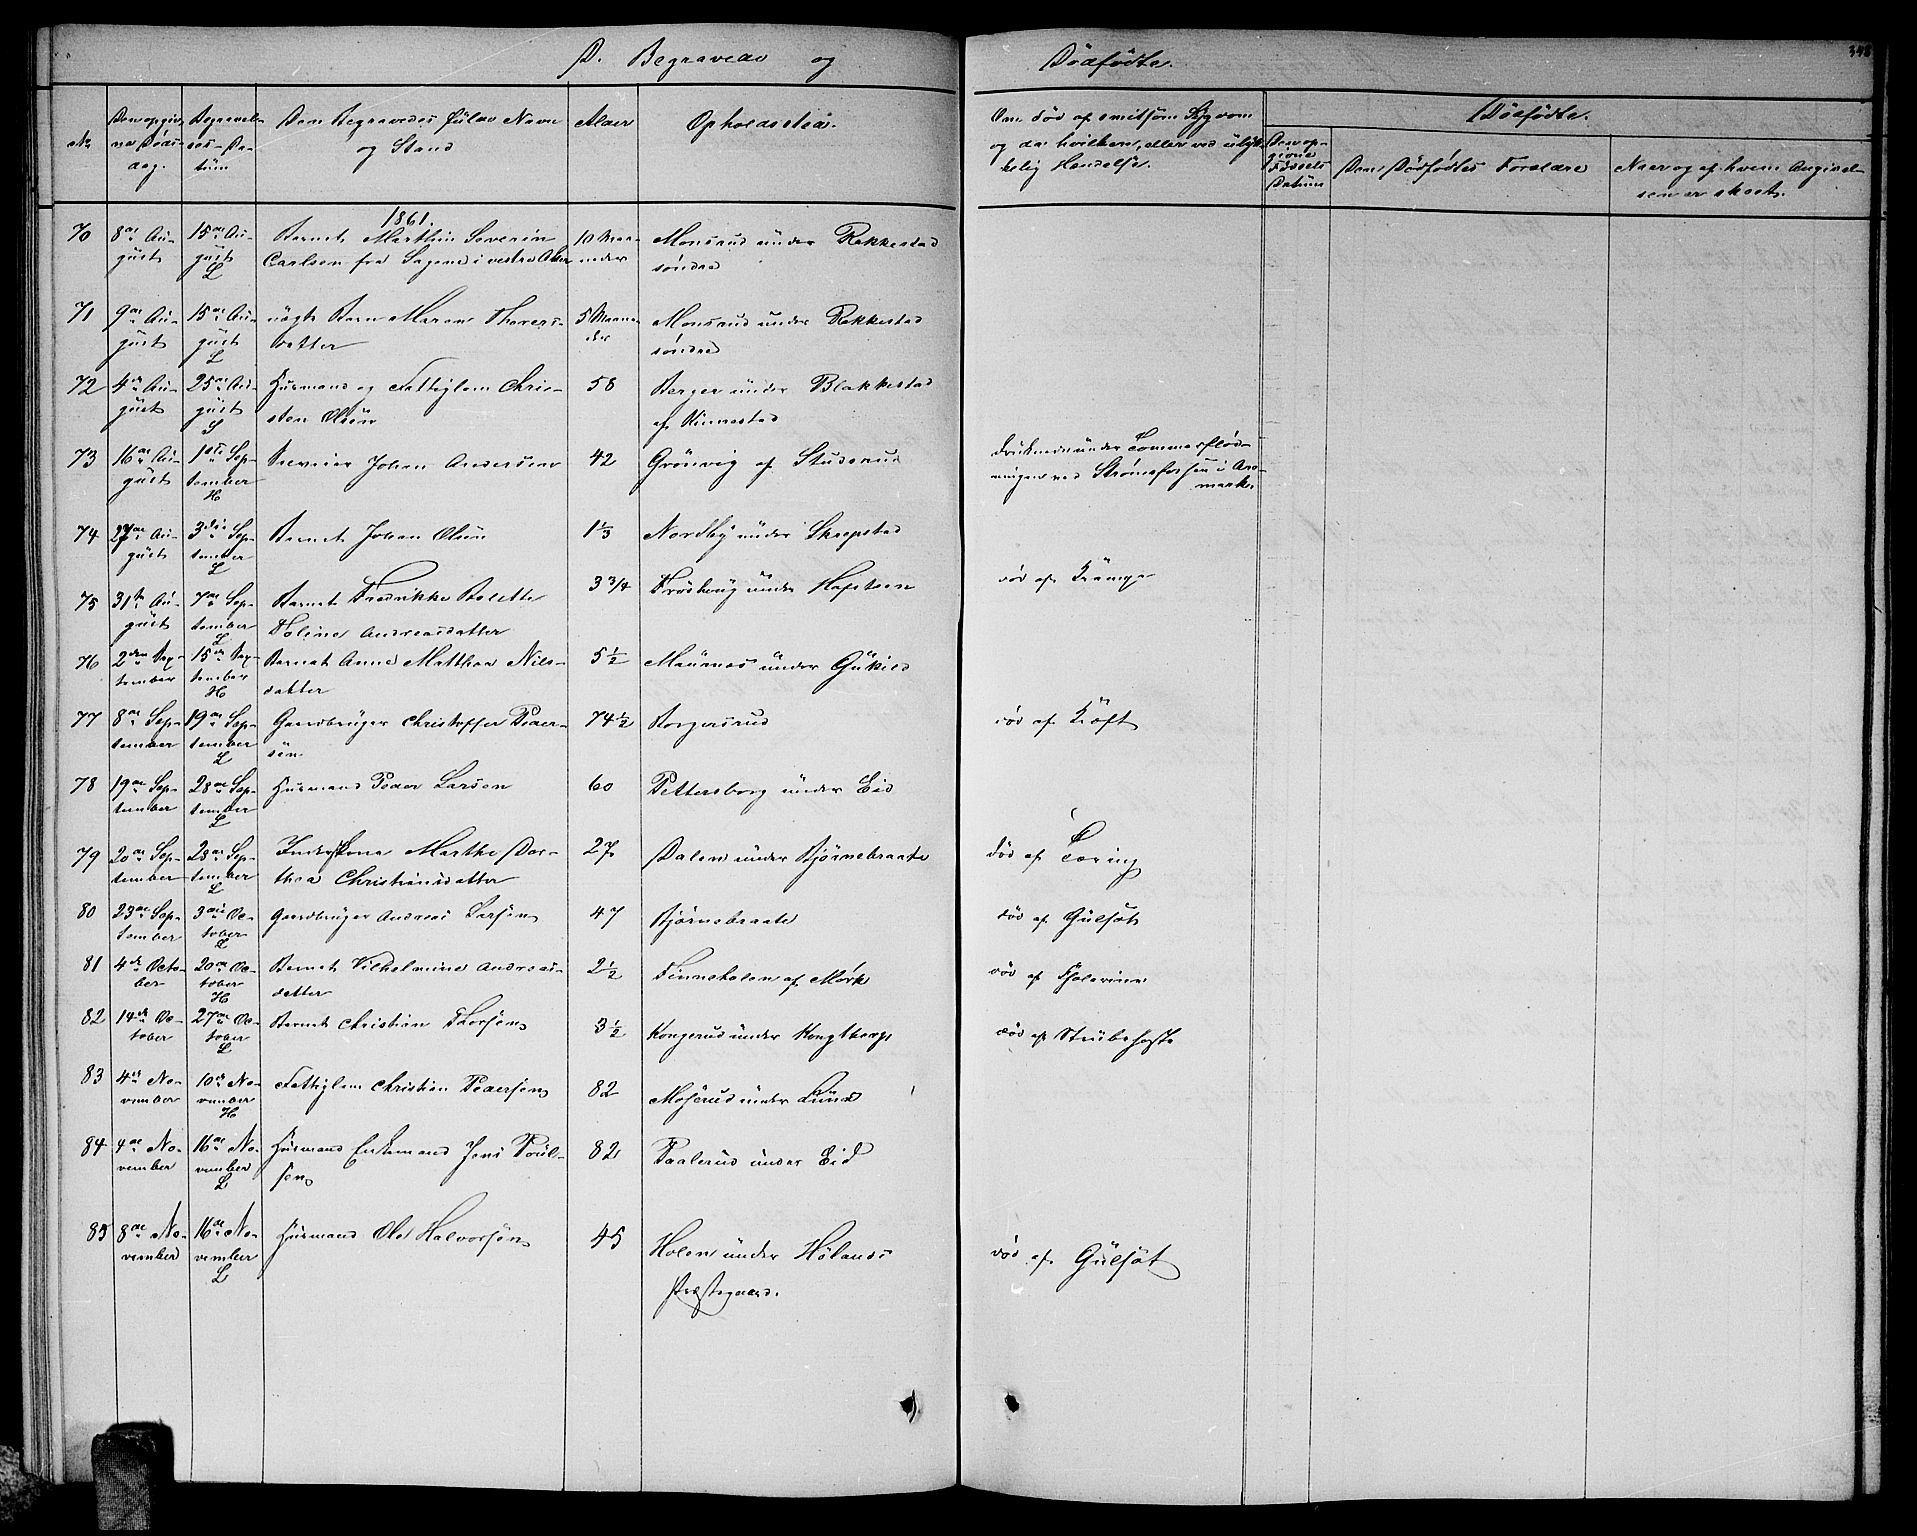 D. Begravede og Dödfödte.
348
No
Den opgivne Döds-
dag.
Begravel-
ses-Da-
tüm
Den Begravedes fülde Navn
og Stand
Alder
Opholdssted.
Om död af smitsom Sygdom
og da hvilken, eller ved ulyk-
kelig Hændelse.
Dödfödte.
Den op-
givne
Födsels
Datum
Den Dödfödtes Forældre
Naar og af hvem Angivel-
sen er skeet.
1861.
70 8de Au-
güst 15de Au-
güst
L Barnet Marthin Severin
Carlsen fra Sagene i vestre Aker 10 Maa-
neder Monsrud under Rakkestad
söndre
71 9de Au-
güst 15de Au-
güst
L uægte Barn Maren Thovers-
datter 5 Maane-
der Monsrud under Rakkestad
söndre
72 4de Au-
güst 25de Au-
güst
S Husmand og Fattiglem Chri-
sten Olsün 58 Berger under Blakkestad
af Kinnestad
73 16de Au-
güst 1ste Sep-
tember
H Johan Andersen 42 Grönvig af Studsrud druknede under Tömmerflöd-
ningen ved Strömsfossen i Are-
marker
74 27de Au-
güst 3die Sep-
tember
L Barnet Johan Olsün 1 1/3 Nordby under Skrepstad
75 31te Au-
güst 7de Sep-
tember
L Barnet Fredrikke Bolette
Holine Andreasdatter 3 3/4 Fröshoug under Hafsteen död af Krampe
76 2den Sep-
tember 15de Sep-
tember
H Barnet Anne Matthea Nils-
datter 5 1/2 Maürnes under Gükild
77 8de Sep-
tember 19de Sep-
tember
L Gaardbrüger Christoffer Peder-
sen 74 1/2 Borgersrud död af Kræft
78 19de Sep-
tember 28de Sep-
tember
L Husmand Peder Larsen 60 Pettersborg under Eid
79 20de Sep-
tember 28de Sep-
tember
L Inderstkone Marthe Dor-
thea Christiansdatter 27 Dalen under Björnebraate död af Tæring
80 23de Sep-
tember 3die Oc-
tober
L Gaardbrüger Andreas Larsen 47 Björnebraate död af Gülsot
81 4de Octo-
ber 20de Oc-
tober
H Barnet Vilhelmine Andreas-
datter 2 1/2 Finneholen af Mörk död af Kolerine
82 14de Oc-
tober 27de Oc-
tober
L Barnet Christian Thorsen 3 1/2 Kongerud under Kongtborge död af Strübehoste
83 4de No-
vember 10de No-
vember
H Fattiglem Christian Pedersen 82 Moserud under Lünd
84 4de No-
vember 16de No-
vember
L Husmand Enkemand Jens Poul-
sen 82 Paalerud under Eid
85 8de No-
vember 16de No-
vember
L Husmand Ole Halvorsen 45 Holen under Hölands
Præstegaard. död af Gülsot